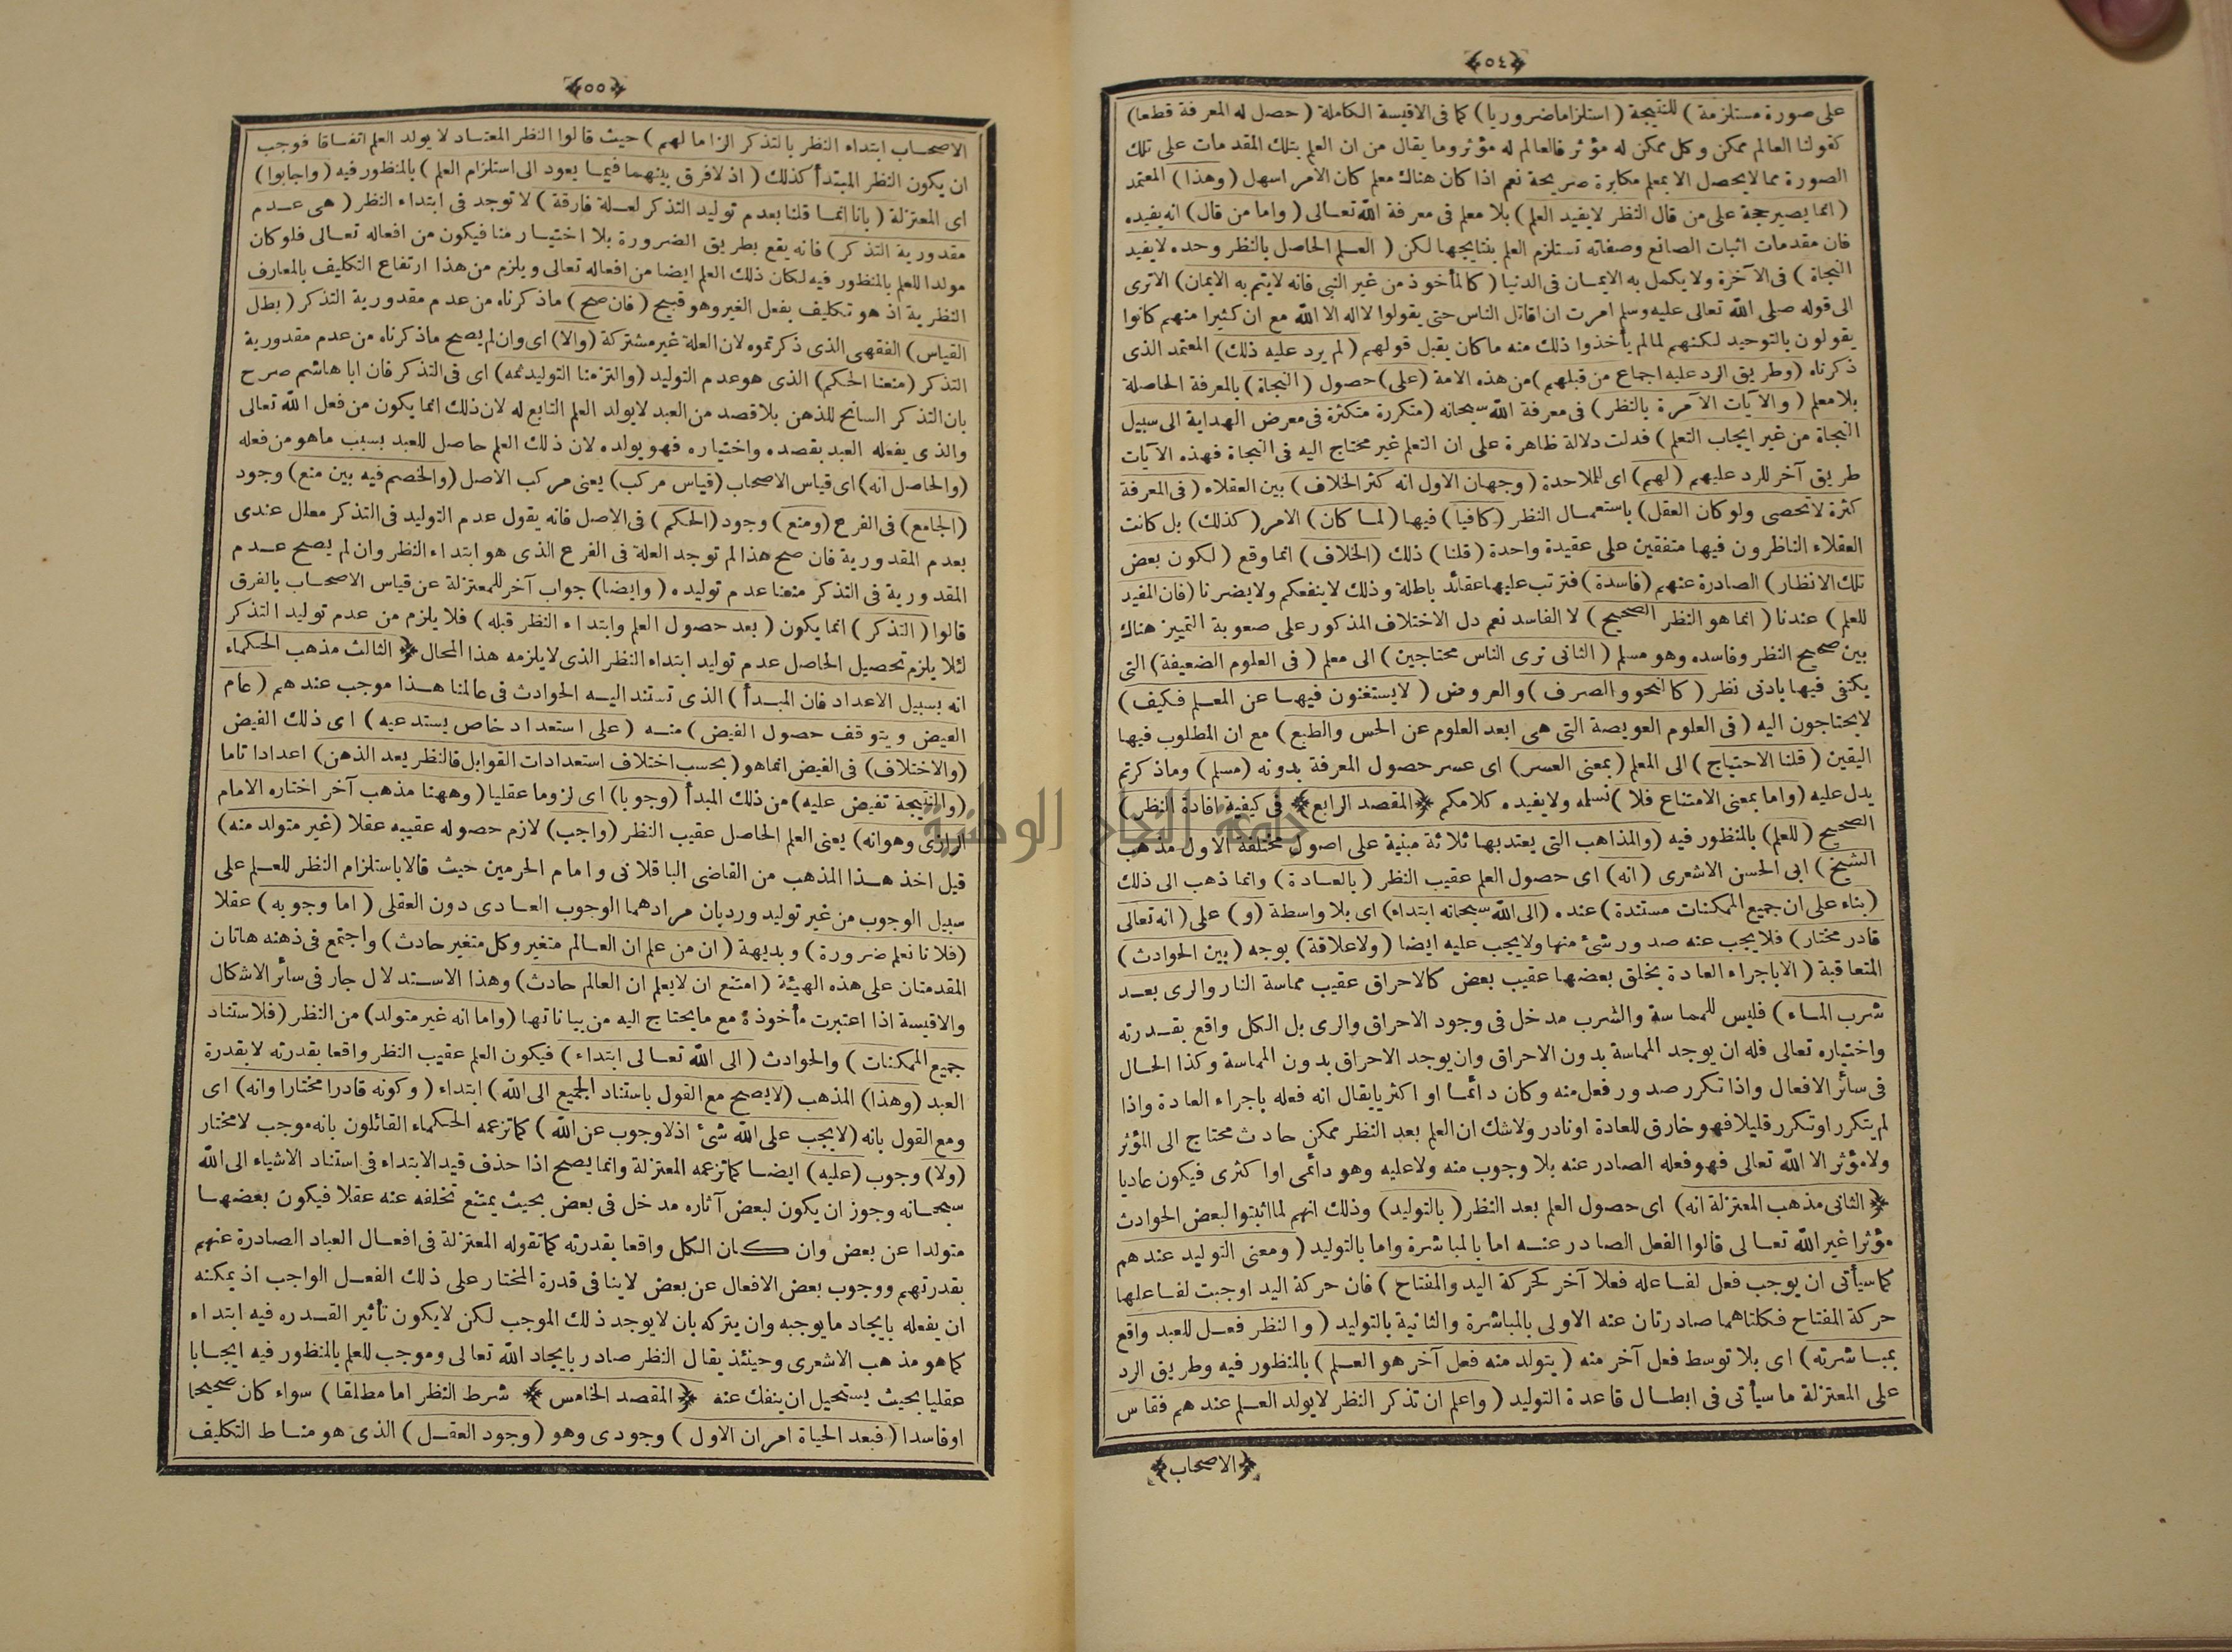 ﴿٥٤﴾
على صورة مستلزمة) للنتيجة (استلزاما ضروريا) كما فى الاقيسة الكاملة (حصل له المعرفة قطعا)
كقولنا العالم ممكن وكل ممكن له مؤثر فالعالم له مؤثر وما يقال من ان العلم بتلك المقدمات على تلك
الصورة مما لايحصل الا بمعلم مكابرة صريحة نعم اذا كان هناك معلم كان الامر اسهل (وهذا) المعتمد
(انما يصير حجة على من قال النظر لايفيد العلم) بلا معلم فى معرفة الله تعالى (واما من قال) انه يفيده
فان مقدمات اثبات الصانع وصفاته تستلزم العلم بنتايجها لكن (العلم الحاصل بالنظر وحده لايفيد
النجاة) فى الآخرة ولا يكمل به الايمان فى الدنيا (كالمأخوذ من غير النبى فانه لايتم به الايمان) الا ترى
الى قوله صلى الله تعالى عليه وسلم امرت ان اقاتل الناس حتى يقولوا لا اله الا الله مع ان كثيرا منهم كانوا
يقولون بالتوحيد لكنهم لما لم يأخذوا ذلك منه ما كان يقبل قولهم (لم يرد عليه ذلك) المعتمد الذى
ذكرناه (وطريق الرد عليه اجماع من قبلهم) من هذه الامة (على) حصول (النجاة) بالمعرفة الحاصلة
بلا معلم (والآيات الآمرة بالنظر) فى معرفة الله سبحانه (متكررة متكثرة فى معرض الهداية الى سبيل
النجاة من غير ايجاب التعلم) فدلت دلالة ظاهرة على ان التعلم غير محتاج اليه فى النجاة فهذه الآيات
طريق آخر للرد عليهم (لهم) اى للملاحدة (وجهان الاول انه كثر الخلاف) بين العقلاء (فى المعرفة
كثرة لاتحصى ولو كان العقل) باستعمال النظر (كافيا) فيها (لما كان) الامر (كذلك) بل كانت
العقلاء الناظرون فيها متفقين على عقيدة واحدة (قلنا) ذلك (الخلاف) انما وقع (لكون بعض
تلك الانظار) الصادرة عنهم (فاسدة) فترتب عليها عقائد باطلة وذلك لاينفعكم ولايضرنا (فان المفيد
للعلم) عندنا (انما هو النظر الصحيح) لا الفاسد نعم دل الاختلاف المذكور على صعوبة التمييز هناك
بين صحيح النظر وفاسده وهو مسلم (الثانى نرى الناس محتاجين) الى معلم (فى العلوم الضعيفة) التى
يكتفى فيها بادنى نظر (كالنحو والصرف) والعروض (لايستغنون فيها عن المعلم فكيف)
لايحتاجون اليه (فى العلوم العويصة التى هى ابعد العلوم عن الحس والطبع) مع ان المطلوب فيها
اليقين (قلنا الاحتياج) الى المعلم (بمعنى العسر) اى عسر حصول المعرفة بدونه (مسلم) وماذكرتم
يدل عليه (واما بمعنى الامتناع فلا) نسلمه ولايفيده كلامكم ﴿المقصد الرابع﴾ فى كيفية افادة النظر)
الصحيح (للعلم) بالمنظور فيه (والمذاهب التى يعتد بها ثلاثة مبنية على اصول مختلفة الاول مذهب
الشيخ) ابى الحسن الاشعرى (انه) اى حصول العلم عقيب النظر (بالعادة) وانما ذهب الى ذلك
(بناء على ان جميع الممكنات مستندة) عنده (الى الله سبحانه ابتداء) اى بلا واسطة (و) على (انه تعالى
قادر مختار) فلايجب عنه صدور شئ منها ولايجب عليه ايضا (ولاعلاقة) بوجه (بين الحوادث)
المتعاقبة (الا باجراء العادة بخلق بعضها عقيب بعض كالاحراق عقيب مماسة النار والرى بعد
شرب الماء) فليس للمماسة والشرب مدخل فى وجود الاحراق والرى بل الكل واقع بقدرته
واختياره تعالى فله ان يوجد المماسة بدون الاحراق وان يوجد الاحراق بدون المماسة وكذا الحال
فى سائر الافعال واذا تكرر صدور فعل منه وكان دائما او اكثريا يقال انه فعله باجراء العادة واذا
لم يتكرر او تكرر قليلا فهو خارق للعادة او نادر ولاشك ان العلم بعد النظر ممكن حادث محتاج الى المؤثر
ولامؤثر الا الله تعالى فهو فعله الصادر عنه بلا وجوب منه ولاعليه وهو دائمى او اكثرى فيكون عاديا
﴿الثانى مذهب المعتزلة انه) اى حصول العلم بعد النظر (بالتوليد) وذلك انهم لما اثبتوا لبعض الحوادث
مؤثرا غير الله تعالى قالوا الفعل الصادر عنه اما بالمباشرة واما بالتوليد (ومعنى التوليد عندهم
كما سيأتى ان يوجب فعل لفاعله فعلا آخر كحركة اليد والمفتاح) فان حركة اليد اوجبت لفاعلها
حركة المفتاح فكلتاهما صادرتان عنه الاولى بالمباشرة والثانية بالتوليد (والنظر فعل للعبد واقع
بمباشرته) اى بلا توسط فعل آخر منه (يتولد منه فعل آخر هو العلم) بالمنظور فيه وطريق الرد
على المعتزلة ما سيأتى فى ابطال قاعدة التوليد (واعلم ان تذكر النظر لايولد العلم عندهم فقاس
﴿الاصحاب﴾
﴿٥٥﴾
الاصحاب ابتداء النظر بالتذكر الزاما لهم) حيث قالوا النظر المعتاد لا يولد العلم اتفاقا فوجب
ان يكون النظر المبتدأ كذلك (اذ لافرق بينهما فيما يعود الى استلزام العلم) بالمنظور فيه (واجابوا)
اى المعتزلة (بانا انما قلنا بعدم توليد التذكر لعلة فارقة) لاتوجد فى ابتداء النظر (هى عدم
مقدورية التذكر) فانه يقع بطريق الضرورة بلا اختيار منا فيكون من افعاله تعالى فلو كان
مولدا للعلم بالمنظور فيه لكان ذلك العلم ايضا من افعاله تعالى ويلزم من هذا ارتفاع التكليف بالمعارف
النظرية اذ هو تكليف بفعل الغير وهو قبيح (فان صح) ماذكرناه من عدم مقدورية التذكر (بطل
القياس) الفقهى الذى ذكرتموه لان العلة غير مشتركة (والا) اى وان لم يصح ماذكرناه من عدم مقدورية
التذكر (منعنا الحكم) الذى هو عدم التوليد (والتزمنا التوليد ثمه) اى فى التذكر فان ابا هاشم صرح
بان التذكر السانح للذهن بلا قصد من العبد لايولد العلم التابع له لان ذلك انما يكون من فعل الله تعالى
والذى يفعله العبد بقصده واختياره فهو يولده لان ذلك العلم حاصل للعبد بسبب ماهو من فعله
(والحاصل انه) اى قياس الاصحاب (قياس مركب) يعنى مركب الاصل (والخصم فيه بين منع) وجود
(الجامع) فى الفرع (ومنع) وجود (الحكم) فى الاصل فانه يقول عدم التوليد فى التذكر معلل عندى
بعدم المقدورية فان صح هذا لم توجد العلة فى الفرع الذى هو ابتداء النظر وان لم يصح عدم
المقدورية فى التذكر منعنا عدم توليده (وايضا) جواب آخر للمعتزلة عن قياس الاصحاب بالفرق
قالوا (التذكر) انما يكون (بعد حصول العلم وابتداء النظر قبله) فلا يلزم من عدم توليد التذكر
لئلا يلزم تحصيل الحاصل عدم توليد ابتداء النظر الذى لايلزمه هذا المحال ﴿الثالث مذهب الحكماء
انه بسبيل الاعداد فان المبدأ) الذى تستند اليه الحوادث فى عالمنا هذا موجب عندهم (عام
الفيض ويتوقف حصول الفيض) منه (على استعداد خاص يستدعيه) اى ذلك الفيض
(والاختلاف) فى الفيض انما هو (بحسب اختلاف استعدادات القوابل فالنظر يعد الذهن) اعدادا تاما
(والنتيجة تفيض عليه) من ذلك المبدأ (وجوبا) اى لزوما عقليا (وههنا مذهب آخر اختاره الامام
الرازى وهو انه) يعنى العلم الحاصل عقيب النظر (واجب) لازم حصوله عقيبه عقلا (غير متولد منه)
قيل اخذ هذا المذهب من القاضى الباقلانى وامام الحرمين حيث قالا باستلزام النظر للعلم على
سبيل الوجوب من غير توليد ورد بان مرادهما الوجوب العادى دون العقلى (اما وجوبه) عقلا
(فلانا نعلم ضرورة) وبديهة (ان من علم ان العالم متغير وكل متغير حادث) واجتمع فى ذهنه هاتان
المقدمتان على هذه الهيئة (امتنع ان لايعلم ان العالم حادث) وهذا الاستدلال جار فى سائر الاشكال
والاقيسة اذا اعتبرت مأخوذة مع مايحتاج اليه من بياناتها (واما انه غير متولد) من النظر (فلاستناد
جميع الممكنات) والحوادث (الى الله تعالى ابتداء) فيكون العلم عقيب النظر واقعا بقدرته لابقدرة
العبد (وهذا) المذهب (لايصح مع القول باستناد الجميع الى الله) ابتداء (وكونه قادرا مختارا وانه) اى
ومع القول بانه (لايجب على الله شئ اذ لاوجوب عن الله) كما تزعمه الحكماء القائلون بانه موجب لامختار
(ولا) وجوب (عليه) ايضا كما تزعمه المعتزلة وانما يصح اذا حذف قيد الابتداء فى استناد الاشياء الى الله
سبحانه وجوز ان يكون لبعض آثاره مدخل فى بعض بحيث يمتنع تخلفه عنه عقلا فيكون بعضها
متولدا عن بعض وان كان الكل واقعا بقدرته كما تقوله المعتزلة فى افعال العباد الصادرة عنهم
بقدرتهم ووجوب بعض الافعال عن بعض لاينافى قدرة المختار على ذلك الفعل الواجب اذ يمكنه
ان يفعله بايجاد مايوجبه وان يتركه بان لايوجد ذلك الموجب لكن لايكون تأثير القدره فيه ابتداء
كما هو مذهب الاشعرى وحينئذ يقال النظر صادر بايجاد الله تعالى وموجب للعلم بالمنظور فيه ايجابا
عقليا بحيث يستحيل ان ينفك عنه ﴿المقصد الخامس﴾ شرط النظر اما مطلقا) سواء كان صحيحا
اوفاسدا (فبعد الحياة امران الاول) وجودى وهو (وجود العقل) الذى هو مناط التكليف
جامعة النجاح الوطنية